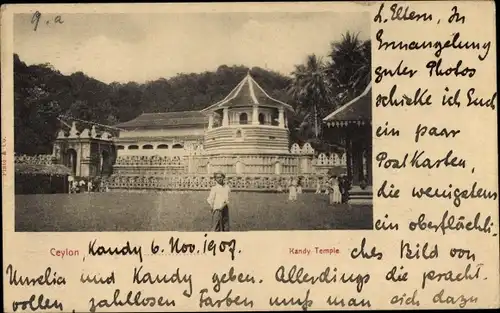 9. a
L. Eltern, In
Ermangelung
guter Photos
schicke ich Euch
ein paar
Postkarten,
die wenigstens
ein oberflächli-
ches Bild von
Ceylon
Kandy 6. Nov. 1907.
Kandy Temple
und Kandy geben. Allerdings die pracht-
vollen, zahllosen Farben muß man sich dazu
Platé & Co.